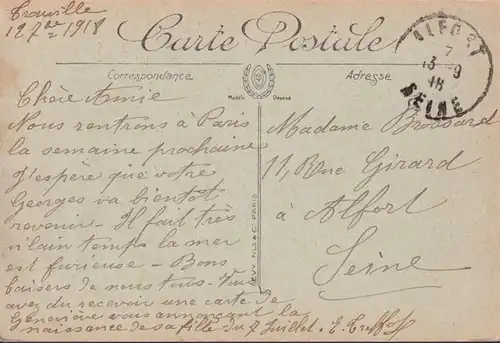 Trouville
12 7bre 1918
Carte Postale
Correspondance
Adresse
Modèle Déposé
ALFORT
7
13 - 9
18
SEINE
Chère Amie
Nous rentrons à Paris
la semaine prochaine
J'espère que votre
Georges va bientôt
revenir - Il fait très
vilain temps la mer
est furieuse - Bons
baisers de nous tous - Vous
avez du recevoir une carte de
Geneviève vous annonçant la
naissance de sa fille du 7 Juillet - E.
LEVY FILS & Cie PARIS
Madame Brossard
11, Rue Girard
à Alfort
Seine